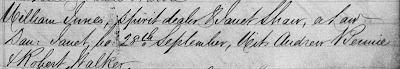 William Innes, Spirit dealer & Janet Shaw, a Law
Dau: Janet, bo: 28th September, Wits Andrew Rennie
& Robert Walker.